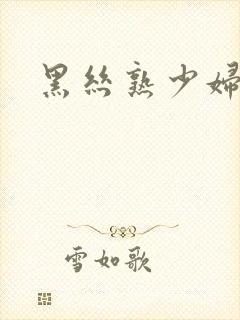 黑丝熟少婦
雪如歌